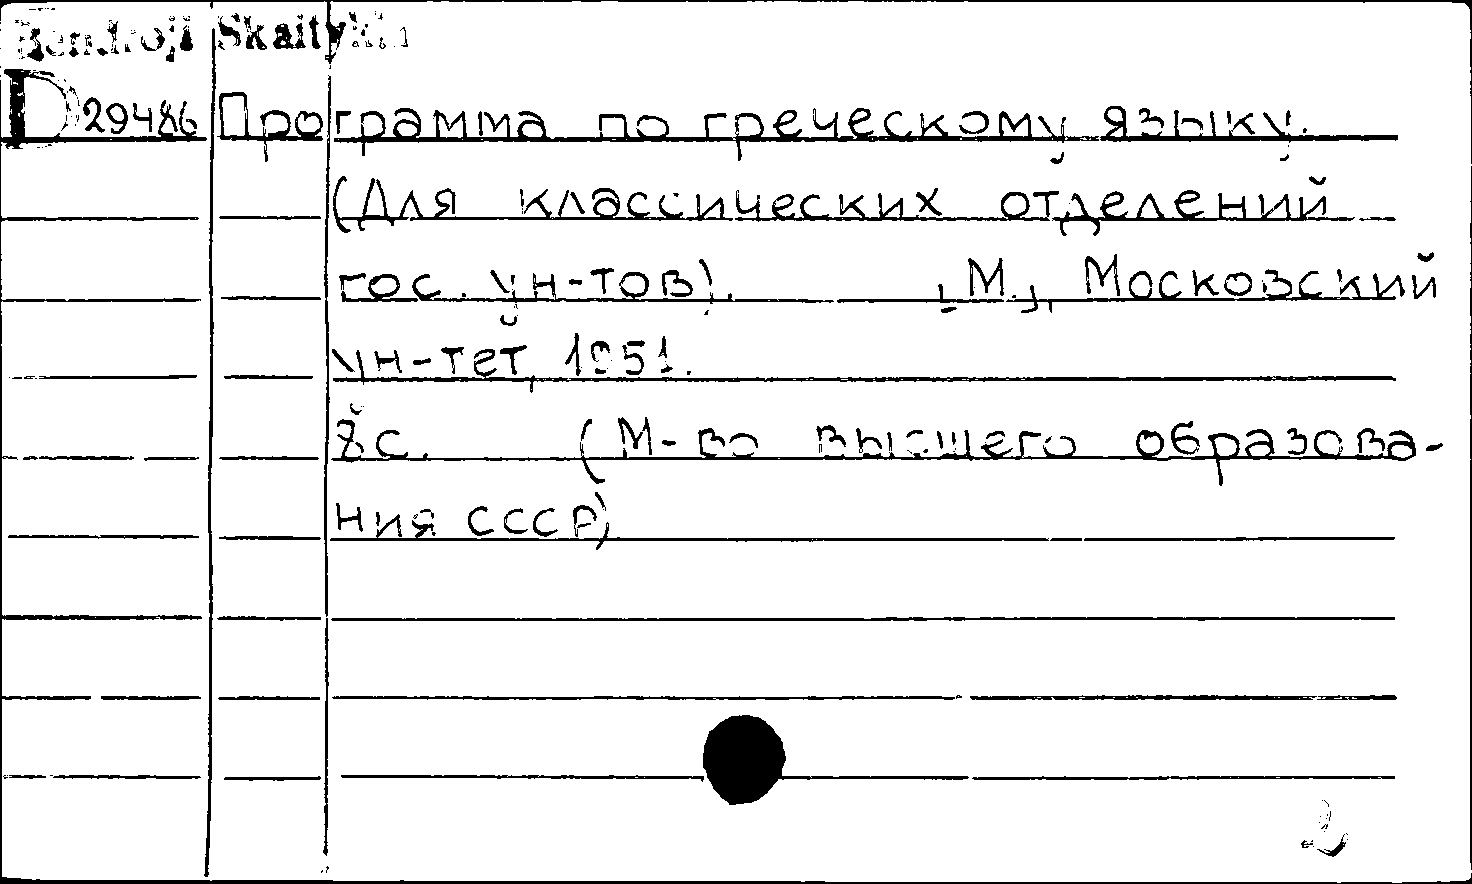 Bendroji Skaitykla
D29486 Программа по греческому языку.
(Для классических отделений
гос. ун-тов). [М.], Московский
ун-тет, 1951.
8 с. (М-во высшего образова-
ния СССР)
2